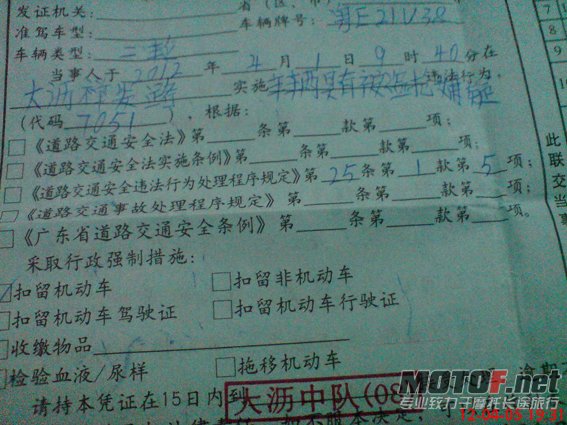 发证机关:
准驾车型: 车辆牌号: 粤E21V38
车辆类型: 三轮
当事人于 2012 年 4 月 1 日 9 时 40 分在
大沥 路 实施 车辆具有被盗抢嫌疑 违法行为,
(代码 7051 ), 根据:
《道路交通安全法》第 条第 款第 项;
《道路交通安全法实施条例》第 条第 款第 项;
《道路交通安全违法行为处理程序规定》第 25 条第 1 款第 5 项;
《道路交通事故处理程序规定》 第 条第 款第 项;
《广东省道路交通安全条例》 第 条第 款第 项。
采取行政强制措施:
扣留机动车 扣留非机动车
扣留机动车驾驶证 扣留机动车行驶证
收缴物品
检验血液/尿样 拖移机动车 逾期
请持本凭证在15日内到 大沥中队(08
此联交当事
MOTOF.net
专业致力于摩托长途旅行
12-04-05 19:31